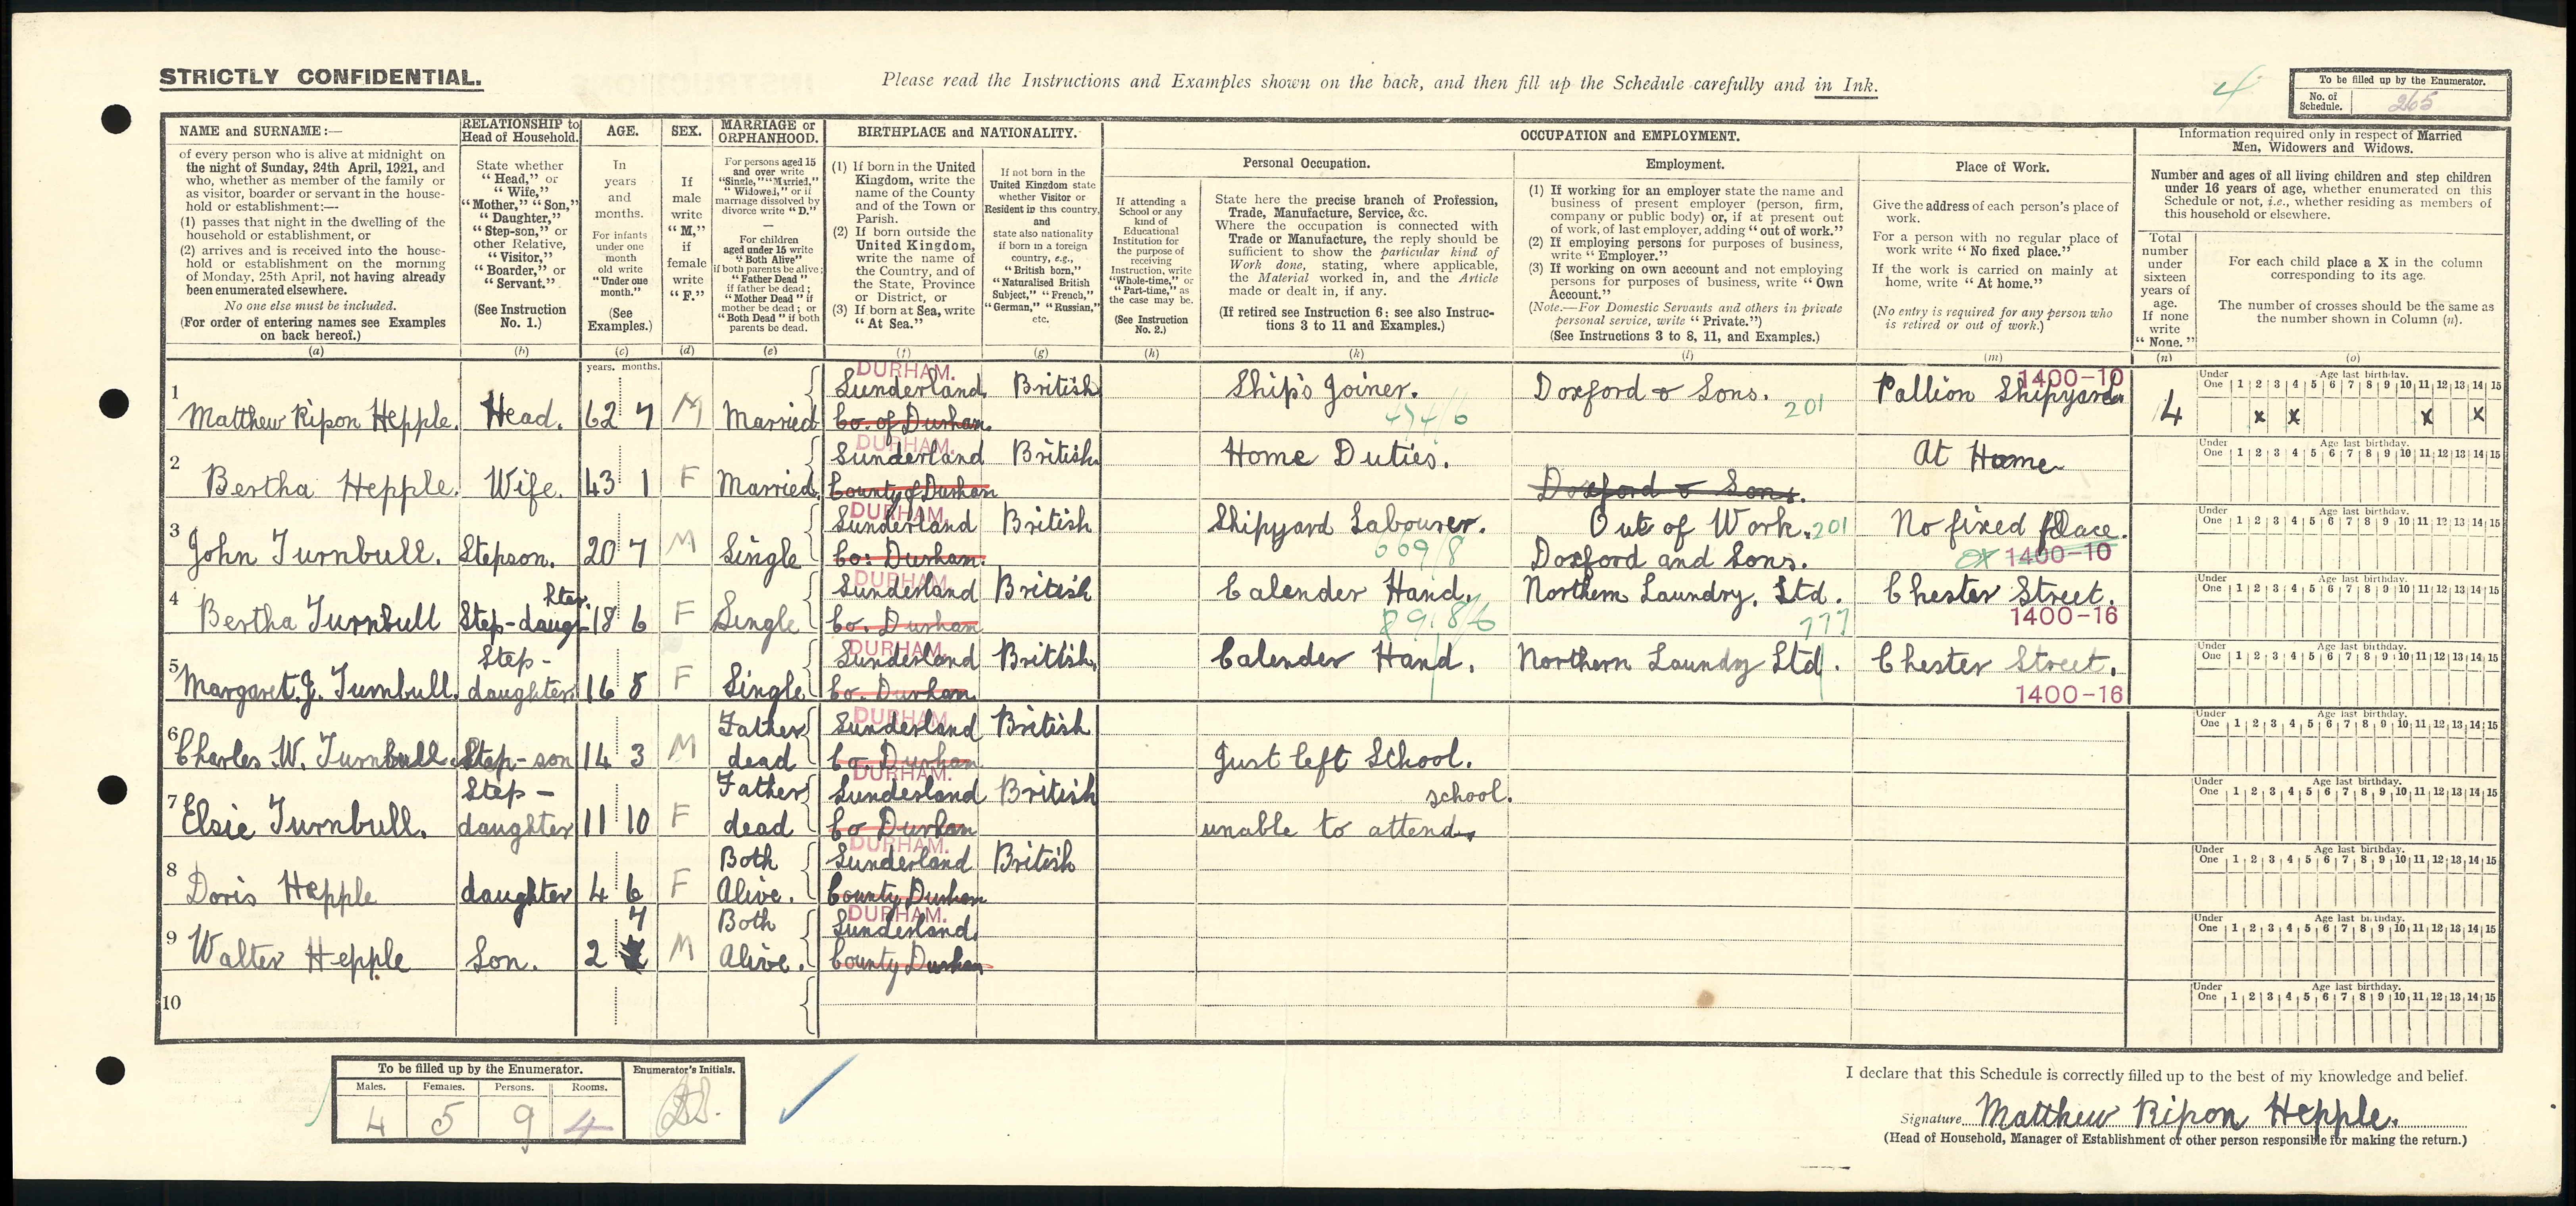 STRICTLY CONFIDENTIAL.
Please read the Instructions and Examples shown on the back, and then fill up the Schedule carefully and in Ink.
4
To be filled up by the Enumerator.
No. of Schedule. 265
NAME and SURNAME:—
of every person who is alive at midnight on
the night of Sunday, 24th April, 1921, and
who, whether as member of the family or
as visitor, boarder or servant in the house-
hold or establishment:—
(1) passes that night in the dwelling of the
household or establishment, or
(2) arrives and is received into the house-
hold or establishment on the morning
of Monday, 25th April, not having already
been enumerated elsewhere.
No one else must be included.
(For order of entering names see Examples
on back hereof.)
(a)
RELATIONSHIP to
Head of Household.
State whether
"Head," or
"Wife,"
"Mother," "Son,"
"Daughter,"
"Step-son," or
other Relative,
"Visitor,"
"Boarder," or
"Servant."
(See Instruction
No. 1.)
(b)
AGE.
In
years
and
months.
For infants
under one
month
old write
"Under one
month."
(See
Examples.)
(c)
years. months.
SEX.
If
male
write
"M,"
if
female
write
"F."
(d)
MARRIAGE or
ORPHANHOOD.
For persons aged 15
and over write
"Single," "Married,"
"Widowed," or if
marriage dissolved by
divorce write "D."
—
For children
aged under 15 write
"Both Alive"
if both parents be alive;
"Father Dead"
if father be dead;
"Mother Dead" if
mother be dead; or
"Both Dead" if both
parents be dead.
(e)
BIRTHPLACE and NATIONALITY.
(1) If born in the United
Kingdom, write the
name of the County
and of the Town or
Parish.
(2) If born outside the
United Kingdom,
write the name of
the Country, and of
the State, Province
or District, or
(3) If born at Sea, write
"At Sea."
(f)
If not born in the
United Kingdom state
whether Visitor or
Resident in this country,
and
state also nationality
if born in a foreign
country, e.g.,
"British born,"
"Naturalised British
Subject," "French,"
"German," "Russian,"
etc.
(g)
OCCUPATION and EMPLOYMENT.
If attending a
School or any
kind of
Educational
Institution for
the purpose of
receiving
Instruction, write
"Whole-time," or
"Part-time," as
the case may be.
(See Instruction
No. 2.)
(h)
Personal Occupation.
State here the precise branch of Profession,
Trade, Manufacture, Service, &c.
Where the occupation is connected with
Trade or Manufacture, the reply should be
sufficient to show the particular kind of
Work done, stating, where applicable,
the Material worked in, and the Article
made or dealt in, if any.
(If retired see Instruction 6: see also Instruc-
tions 3 to 11 and Examples.)
(k)
Employment.
(1) If working for an employer state the name and
business of present employer (person, firm,
company or public body) or, if at present out
of work, of last employer, adding "out of work."
(2) If employing persons for purposes of business,
write "Employer."
(3) If working on own account and not employing
persons for purposes of business, write "Own
Account."
(Note.—For Domestic Servants and others in private
personal service, write "Private.")
(See Instructions 3 to 8, 11, and Examples.)
(l)
Place of Work.
Give the address of each person's place of
work.
For a person with no regular place of
work write "No fixed place."
If the work is carried on mainly at
home, write "At home."
(No entry is required for any person who
is retired or out of work.)
(m)
Information required only in respect of Married
Men, Widowers and Widows.
Number and ages of all living children and step children
under 16 years of age, whether enumerated on this
Schedule or not, i.e., whether residing as members of
this household or elsewhere.
Total
number
under
sixteen
years of
age.
If none
write
"None."
(n)
For each child place a X in the column
corresponding to its age.
The number of crosses should be the same as
the number shown in Column (n).
(o)
DURHAM. 1400-10
1 Sunderland British Ship's Joiner. Doxford & Sons. 201 Pallion Shipyard
Matthew Ripon Hepple. Head. 62 7 M Married Co. of Durham. 474/6 4 x x x x
Under One Age last birthday. 1 2 3 4 5 6 7 8 9 10 11 12 13 14 15
DURHAM.
2 Sunderland British Home Duties. At Home
Bertha Hepple. Wife. 43 1 F Married. County of Durham Doxford & Sons.
Under One Age last birthday. 1 2 3 4 5 6 7 8 9 10 11 12 13 14 15
DURHAM.
3 Sunderland British Shipyard Labourer. Out of Work. 201 No fixed place.
John Turnbull. Stepson. 20 7 M Single Co: Durham. 669/8 Doxford and Sons. 1400-10
Under One Age last birthday. 1 2 3 4 5 6 7 8 9 10 11 12 13 14 15
DURHAM.
4 hter. Sunderland British Calender Hand. Northern Laundry. Ltd. Chester Street.
Bertha Turnbull Step-daug- 18 6 F Single Co. Durham 898/6 777 1400-16
Under One Age last birthday. 1 2 3 4 5 6 7 8 9 10 11 12 13 14 15
DURHAM.
5 Step- Sunderland British. Calender Hand. Northern Laundry Ltd. Chester Street.
Margaret. J. Turnbull. daughter 16 8 F Single Co. Durham 1400-16
Under One Age last birthday. 1 2 3 4 5 6 7 8 9 10 11 12 13 14 15
DURHAM
6 Father Sunderland British
Charles. W. Turnbull. Step-son 14 3 M dead Co. Durham Just left School.
Under One Age last birthday. 1 2 3 4 5 6 7 8 9 10 11 12 13 14 15
DURHAM.
7 Step- Father Sunderland British school.
Elsie Turnbull. daughter 11 10 F dead Co Durham unable to attend
Under One Age last birthday. 1 2 3 4 5 6 7 8 9 10 11 12 13 14 15
DURHAM.
8 Both Sunderland British
Doris Hepple daughter 4 6 F Alive. County Durham
Under One Age last birthday. 1 2 3 4 5 6 7 8 9 10 11 12 13 14 15
DURHAM.
9 7 Both Sunderland.
Walter Hepple Son. 2 M Alive. County Durham
Under One Age last birthday. 1 2 3 4 5 6 7 8 9 10 11 12 13 14 15
10
Under One Age last birthday. 1 2 3 4 5 6 7 8 9 10 11 12 13 14 15
To be filled up by the Enumerator. Enumerator's Initials.
Males. Females. Persons. Rooms.
4 5 9 4
I declare that this Schedule is correctly filled up to the best of my knowledge and belief.
Signature Matthew Ripon Hepple.
(Head of Household, Manager of Establishment or other person responsible for making the return.)